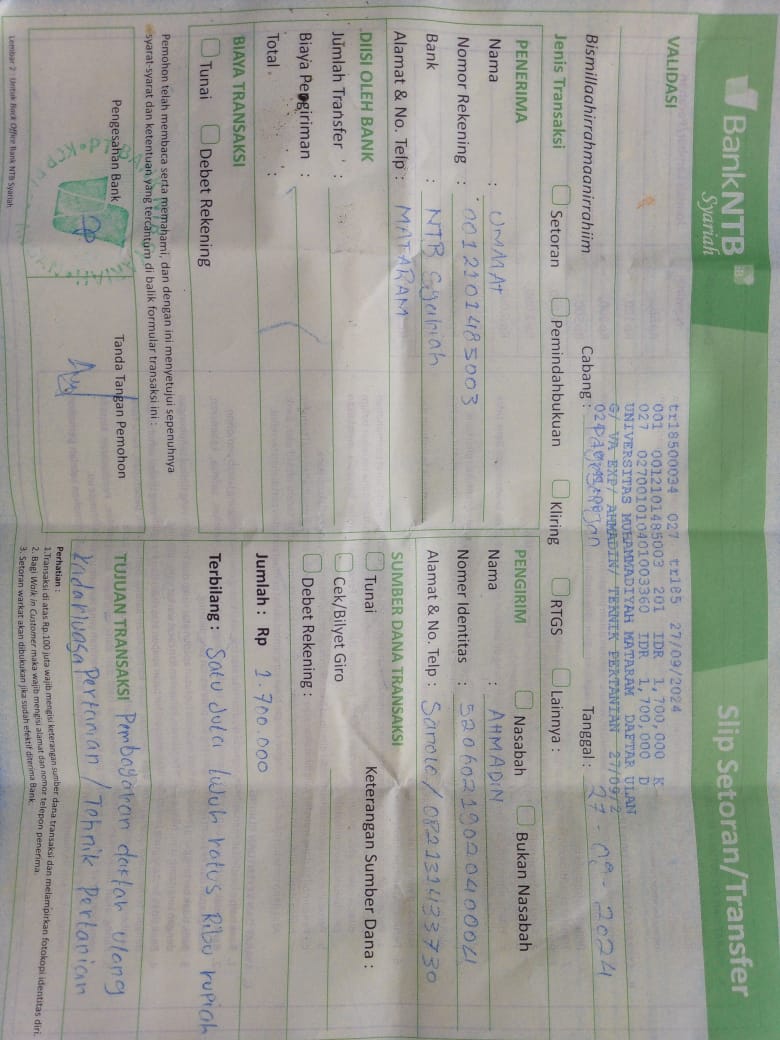 Bank NTB
Syariah
Slip Setoran/Transfer
VALIDASI
tr18500034 027 tr185 27/09/2024
001 0012101485003 201 IDR 1,700,000 K
027 0270010104001003360 IDR 1,700,000 D
UNIVERSITAS MUHAMMADIYAH MATARAM DAFTAR ULAN
G/ VA EXP/ AHMADIN/ TEKNIK PERTANIAN 27/09/2
024
Bismillaahirrahmaanirrahiim
Cabang :
Tanggal : 27 - 09 - 2024
Jenis Transaksi
Setoran
Pemindahbukuan
Kliring
RTGS
Lainnya :
PENERIMA
Nama : UMMAT
Nomor Rekening : 0012101485003
Bank : NTB Syariah
Alamat & No. Telp : MATARAM
PENGIRIM
Nasabah
Bukan Nasabah
Nama : AHMADIN
Nomer Identitas : 5206021902040004
Alamat & No. Telp : / 082131423730
DIISI OLEH BANK
Jumlah Transfer :
Biaya Pengiriman :
Total :
SUMBER DANA TRANSAKSI
Tunai
Keterangan Sumber Dana :
Cek/Bilyet Giro
Debet Rekening :
BIAYA TRANSAKSI
Tunai
Debet Rekening
Jumlah : Rp 1.700.000
Terbilang : Satu Juta tujuh ratus Ribu rupiah
Pemohon telah membaca serta memahami, dan dengan ini menyetujui sepenuhnya
syarat-syarat dan ketentuan yang tercantum di balik formular transaksi ini :
Pengesahan Bank
Tanda Tangan Pemohon
TUJUAN TRANSAKSI Pembayaran daftar ulang
Pertanian / Tehnik Pertanian
Perhatian :
1.Transaksi di atas Rp.100 juta wajib mengisi keterangan sumber dana transaksi dan melampirkan fotokopi identitas diri.
2. Bagi Walk in Customer maka wajib mengisi alamat dan nomor telepon penerima.
3. Setoran warkat akan dibukukan jika sudah efektif diterima Bank.
Lembar 2 : Untuk Back Office Bank NTB Syariah